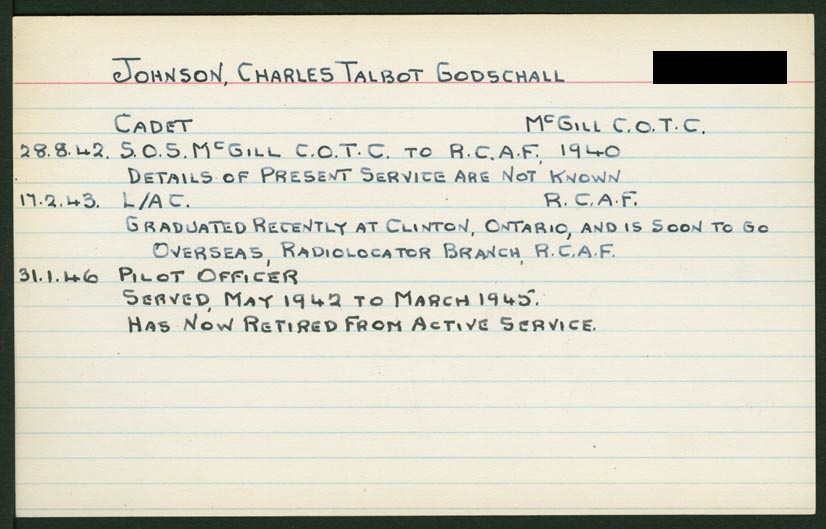 JOHNSON, CHARLES TALBOT GODSCHALL
CADET McGILL C.O.T.C.
28.8.42. S.O.S. McGILL C.O.T.C. TO R.C.A.F., 1940
DETAILS OF PRESENT SERVICE ARE NOT KNOWN
17.2.43. L/AC. R.C.A.F.
GRADUATED RECENTLY AT CLINTON, ONTARIO, AND IS SOON TO GO
OVERSEAS, RADIOLOCATOR BRANCH, R.C.A.F.
31.1.46 PILOT OFFICER
SERVED, MAY 1942 TO MARCH 1945.
HAS NOW RETIRED FROM ACTIVE SERVICE.